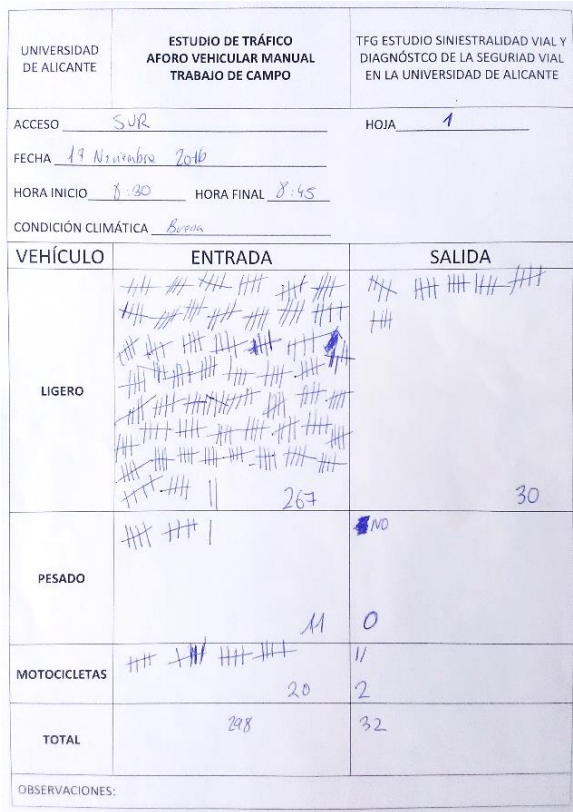 UNIVERSIDAD
DE ALICANTE
ESTUDIO DE TRÁFICO
AFORO VEHICULAR MANUAL
TRABAJO DE CAMPO
TFG ESTUDIO SINIESTRALIDAD VIAL Y
DIAGNÓSTCO DE LA SEGURIAD VIAL
EN LA UNIVERSIDAD DE ALICANTE
ACCESO SUR
HOJA 1
FECHA 17 Noviembre 2016
HORA INICIO 8:30 HORA FINAL 8:45
CONDICIÓN CLIMÁTICA Buena
VEHÍCULO ENTRADA SALIDA
LIGERO
267 30
PESADO
NO
11 0
MOTOCICLETAS
20 2
TOTAL 298 32
OBSERVACIONES: